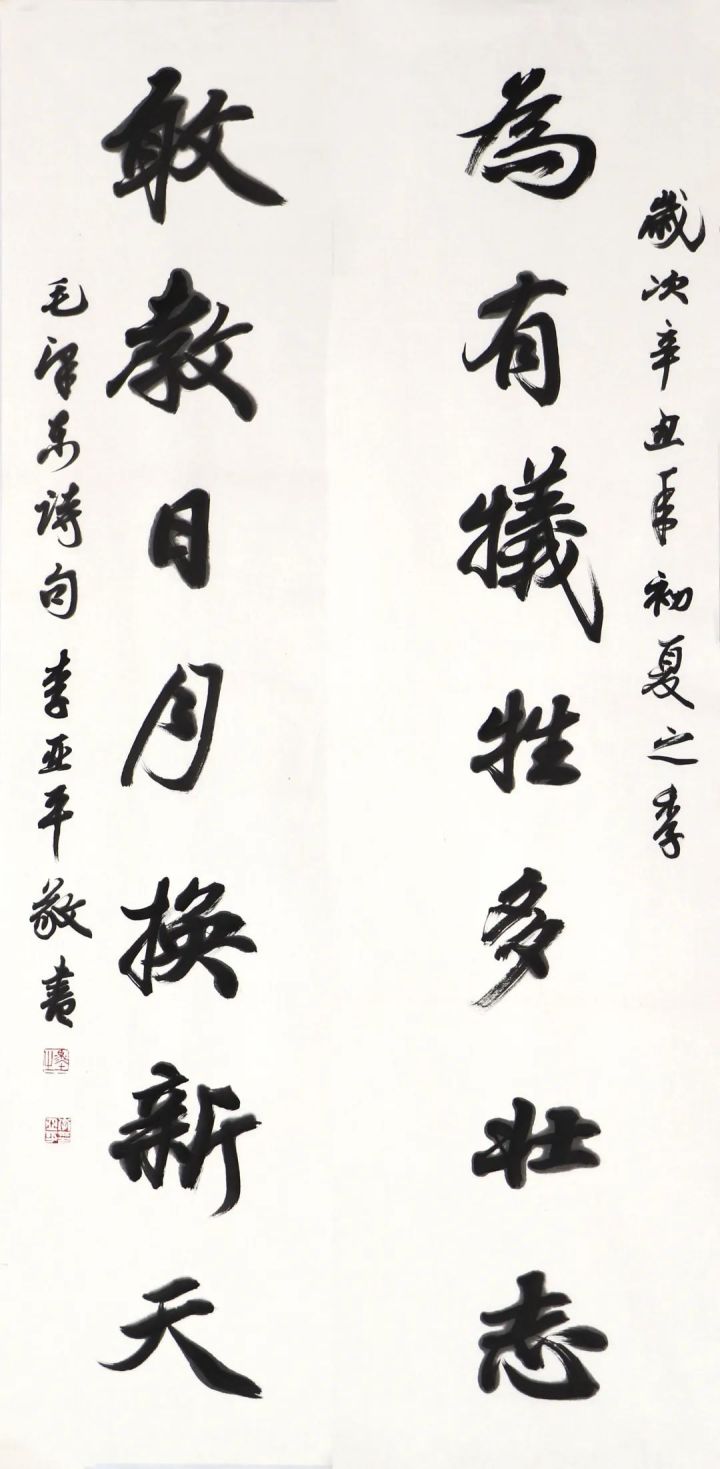 歲次辛丑年初夏之季
為有犧牲多壯志
敢教日月換新天
毛澤东詩句李亚平敬書